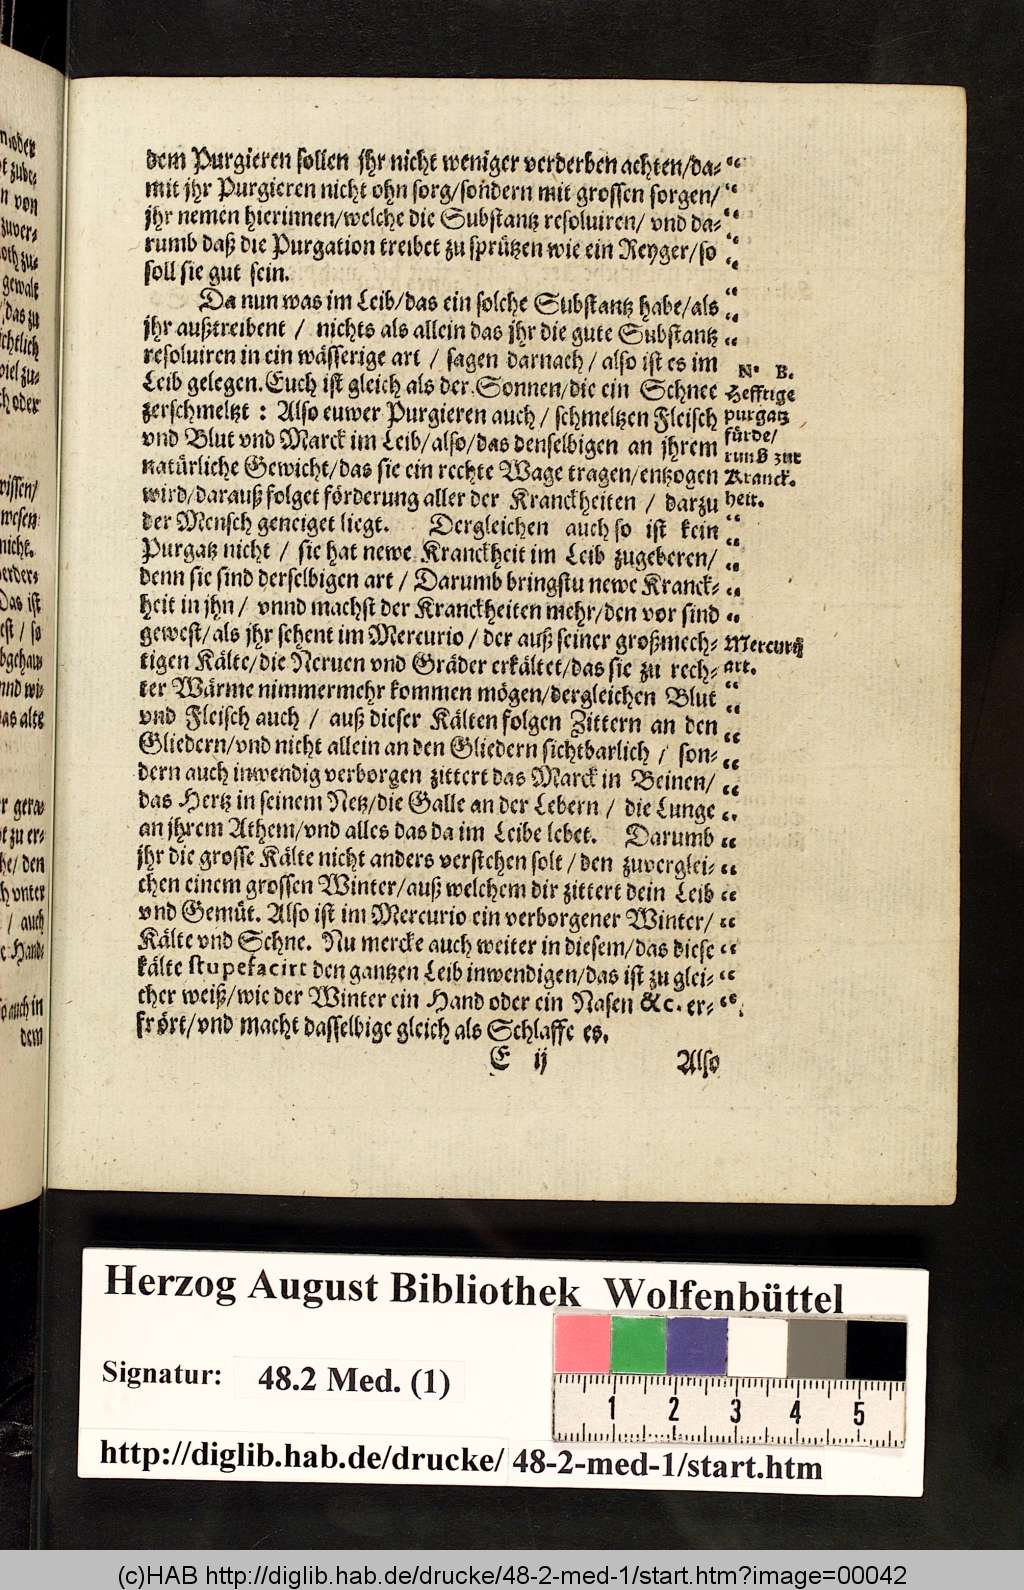 dem Purgieren sollen jhr nicht weniger verderben achten/da-
mit jhr Purgieren nicht ohn sorg/sondern mit grossen sorgen/
jhr nemen hierinnen/welche die Substantz resoluiren/ vnd da-
rumb daß die Purgation treibet zu sprützen wie ein Reyger/so
soll sie gut sein.
Da nun was im Leib/das ein solche Substantz habe/als
jhr außtreibent / nichts als allein das jhr die gute Substantz
resoluiren in ein wässerige art / sagen darnach / also ist es im
Leib gelegen. Euch ist gleich als der Sonnen/die ein Schnee
zerschmeltzt : Also euwer Purgieren auch / schmeltzen Fleisch
vnd Blut vnd Marck im Leib/also/das denselbigen an jhrem
natürliche Gewicht/das sie ein rechte Wage tragen/entzogen
wird/darauß folget förderung aller der Kranckheiten / darzu
der Mensch geneiget liegt. Dergleichen auch so ist kein
Purgatz nicht / sie hat newe Kranckheit im Leib zugeberen/
denn sie sind derselbigen art / Darumb bringstu newe Kranck-
heit in jhn / vnnd machst der Kranckheiten mehr/den vor sind
gewest/als jhr sehent im Mercurio / der auß seiner großmech-
tigen Kälte/die Neruen vnd Gräder erkältet/das sie zu rech-
ter Wärme nimmermehr kommen mögen/dergleichen Blut
vnd Fleisch auch / auß dieser Kälten folgen Zittern an den
Gliedern/vnd nicht allein an den Gliedern sichtbarlich / son-
dern auch inwendig verborgen zittert das Marck in Beinen/
das Hertz in seinem Netz/die Galle an der Lebern / die Lunge
an jhrem Athem/vnd alles das da im Leibe lebet. Darumb
jhr die grosse Kälte nicht anders verstehen solt / den zuverglei-
chen einem grossen Winter/auß welchem dir zittert dein Leib
vnd Gemüt. Also ist im Mercurio ein verborgener Winter/
Kälte vnd Schne. Nu mercke auch weiter in diesem/das diese
kälte stupefacirt den gantzen Leib inwendigen/das ist zu glei-
cher weiß/wie der Winter ein Hand oder ein Nasen &c. er-
frört/vnd macht dasselbige gleich als Schlaffe es.
E ij Also
N. B.
Hefftige
purgatz
fürde/
runß zur
Kranck.
heit.
Mercurij
art.
Herzog August Bibliothek Wolfenbüttel
Signatur: 48.2 Med. (1)
1 2 3 4 5
http://diglib.hab.de/drucke/ 48-2-med-1/start.htm
(c)HAB http://diglib.hab.de/drucke/48-2-med-1/start.htm?image=00042